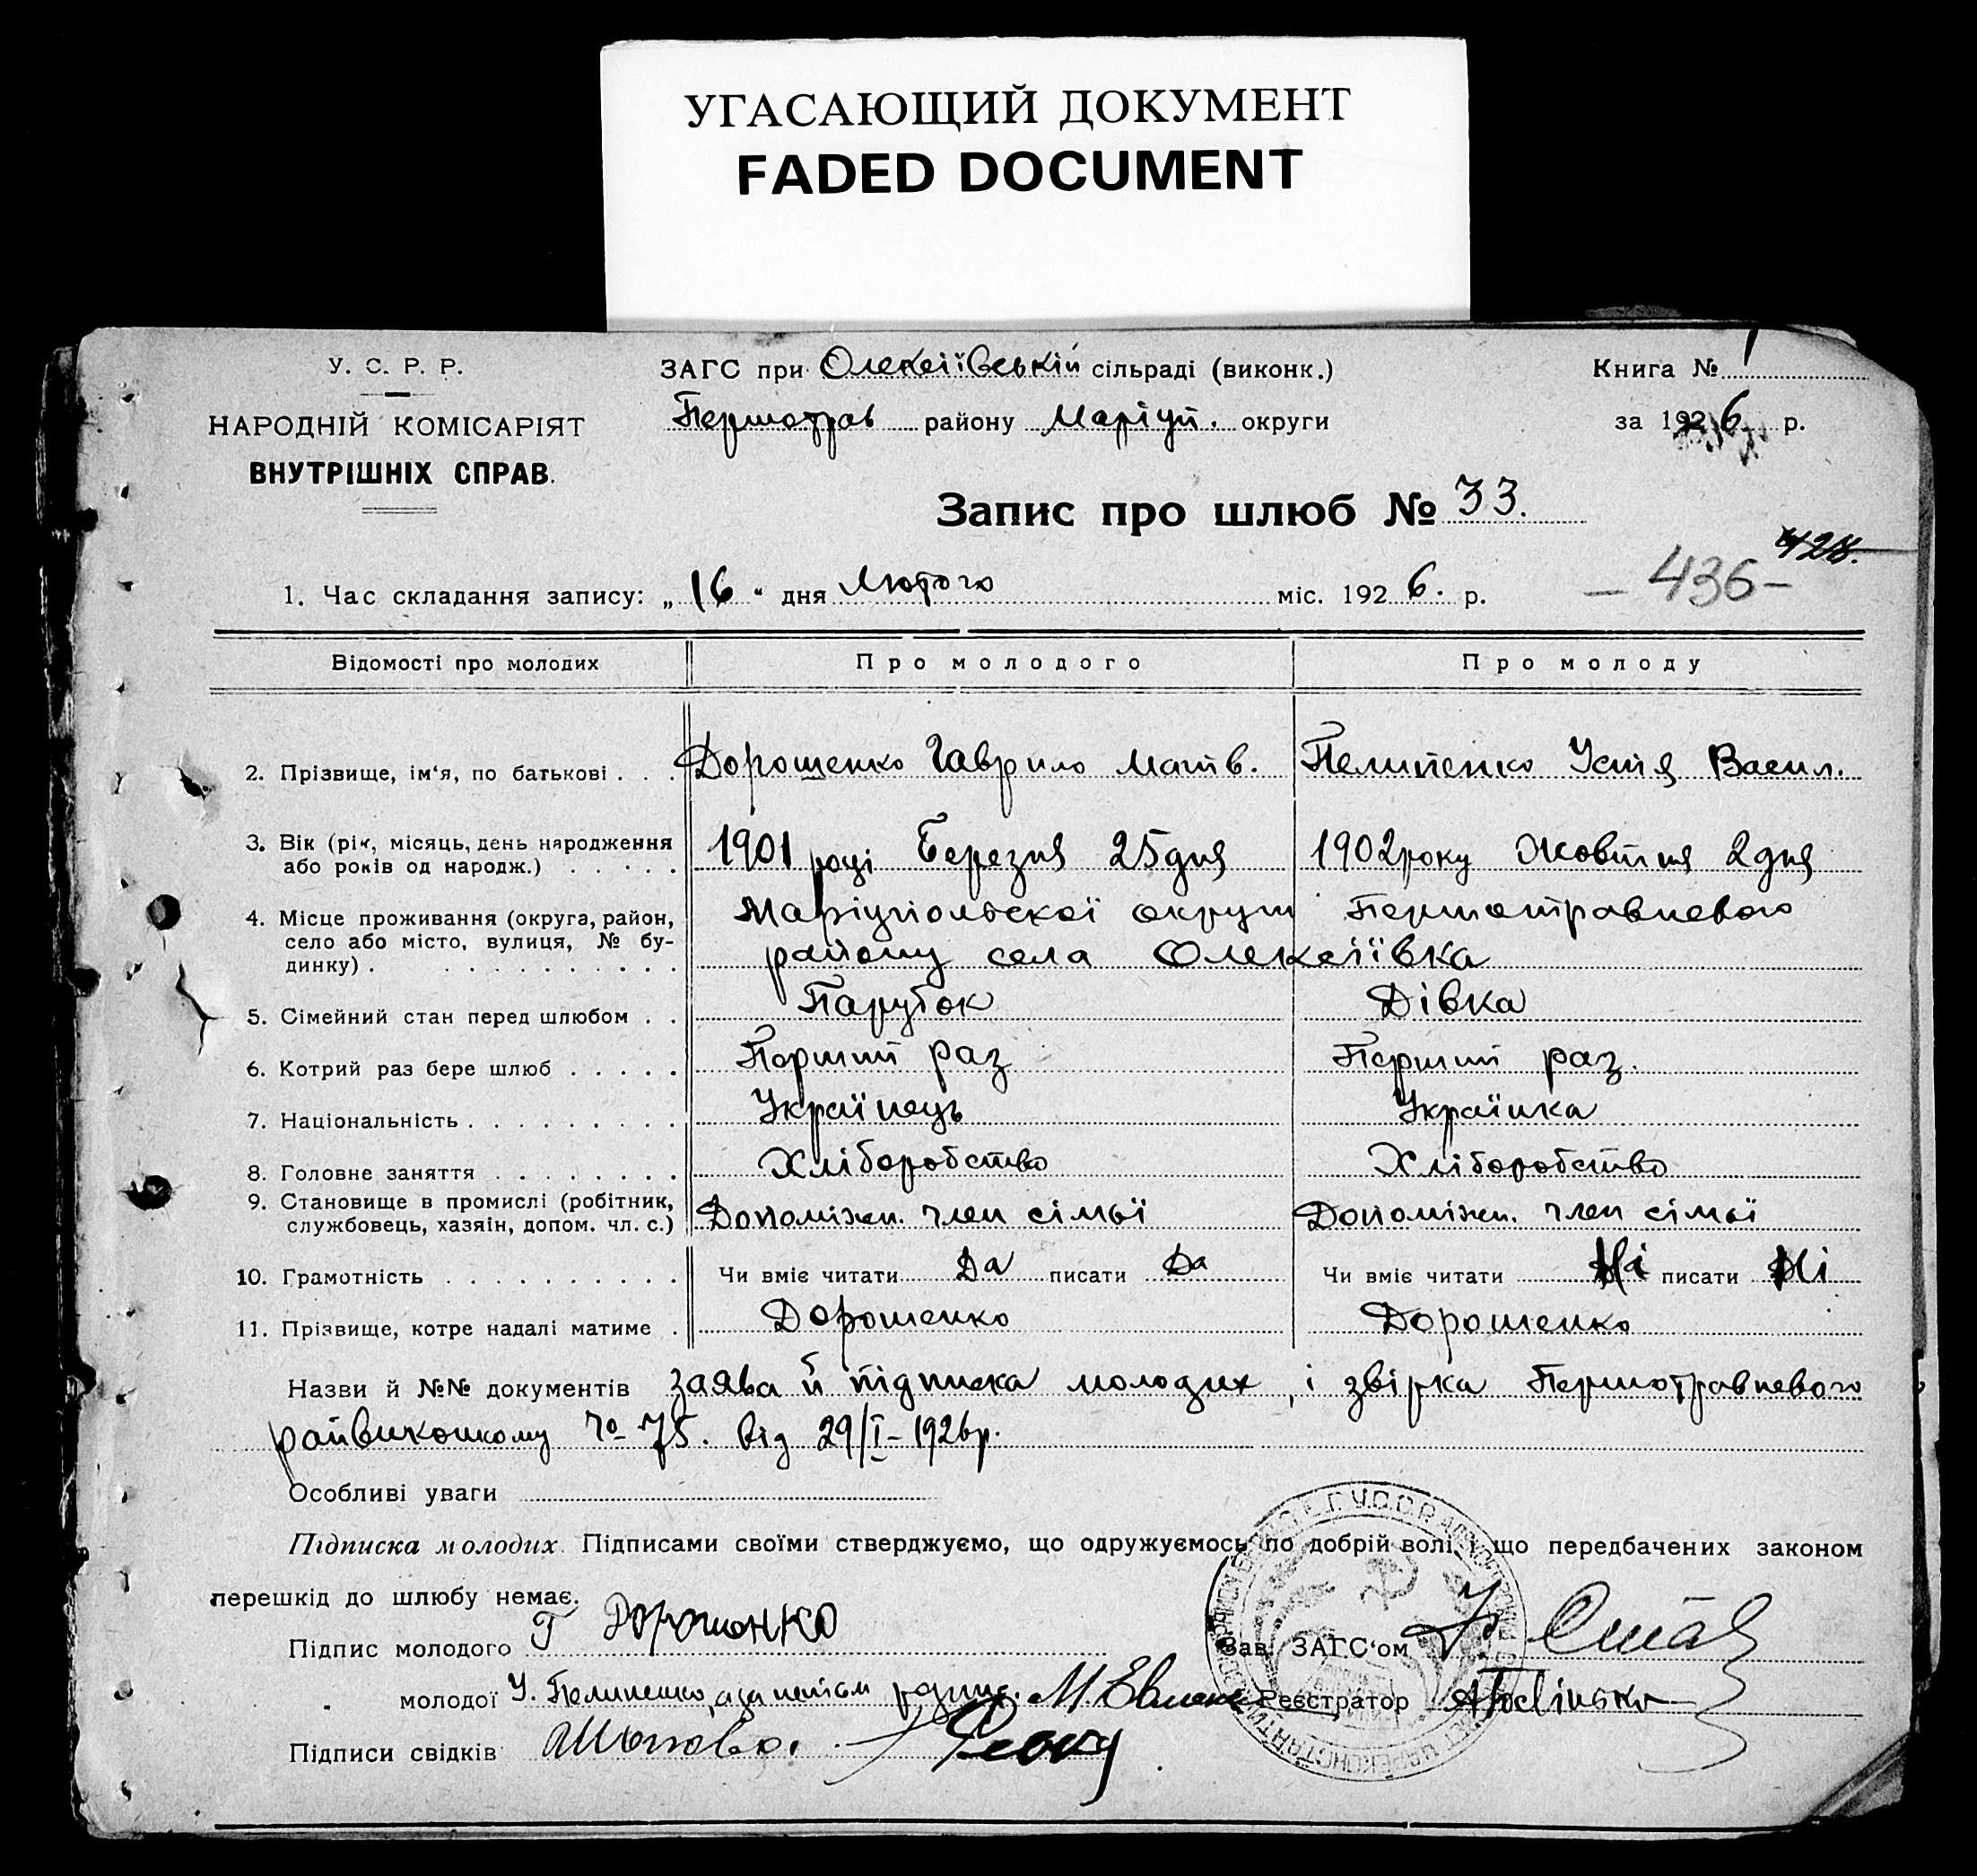 УГАСАЮЩИЙ ДОКУМЕНТ
FADED DOCUMENT
У. С. Р. Р.
НАРОДНІЙ КОМІСАРІЯТ
ВНУТРІШНІХ СПРАВ.
ЗАГС при Олексіївській сільраді (виконк.)
Першотрав району Маріуп. округи
Книга № 1
за 1926 р.
Запис про шлюб № 33.
428.
— 436 —
1. Час складання запису: „16“ дня Лютого міс. 1926. р.
Відомості про молодих Про молодого Про молоду
2. Прізвище, ім‘я, по батькові . . . Дорошенко Гаврило Матв. Пелипенко Устя Васил.
3. Вік (рік, місяць, день народження або років од народж.) . . . . . 1901 році Березня 25 дня 1902 року Жовтня 2 дня
4. Місце проживання (округа, район, Маріупільської округи Першотравневого
село або місто, вулиця, № бу-
динку) . . . . . . . . . . . району села Олексіївка
5. Сімейний стан перед шлюбом . . Парубок Дівка
6. Котрий раз бере шлюб . . . . . Перший раз Перший раз.
7. Національність . . . . . . . . . Українець Українка
8. Головне заняття . . . . . . . . Хліборобство Хліборобство
9. Становище в промислі (робітник,
службовець, хазяїн, допом. чл. с.) Допоміжн. член сімьї Допоміжн. член сімьї
10. Грамотність . . . . . . . . . . Чи вміє читати Да писати Да Чи вміє читати Ні писати Ні
11. Прізвище, котре надалі матиме . Дорошенко Дорошенко
Назви й №№ документів заява й підписка молодих, і звірка Першотравневого
райвиконкому № 75. від 29/I–1926р.
Особливі уваги
Підписка молодих. Підписами своїми стверджуємо, що одружуємось по добрій волі і що передбачених законом
перешкід до шлюбу немає.
Підпис молодого Г Дорошенко
Зав. ЗАГС‘ом
„ молодої У. Пелипенко, а за негом розпис. М.
Реєстратор
Підписи свідків